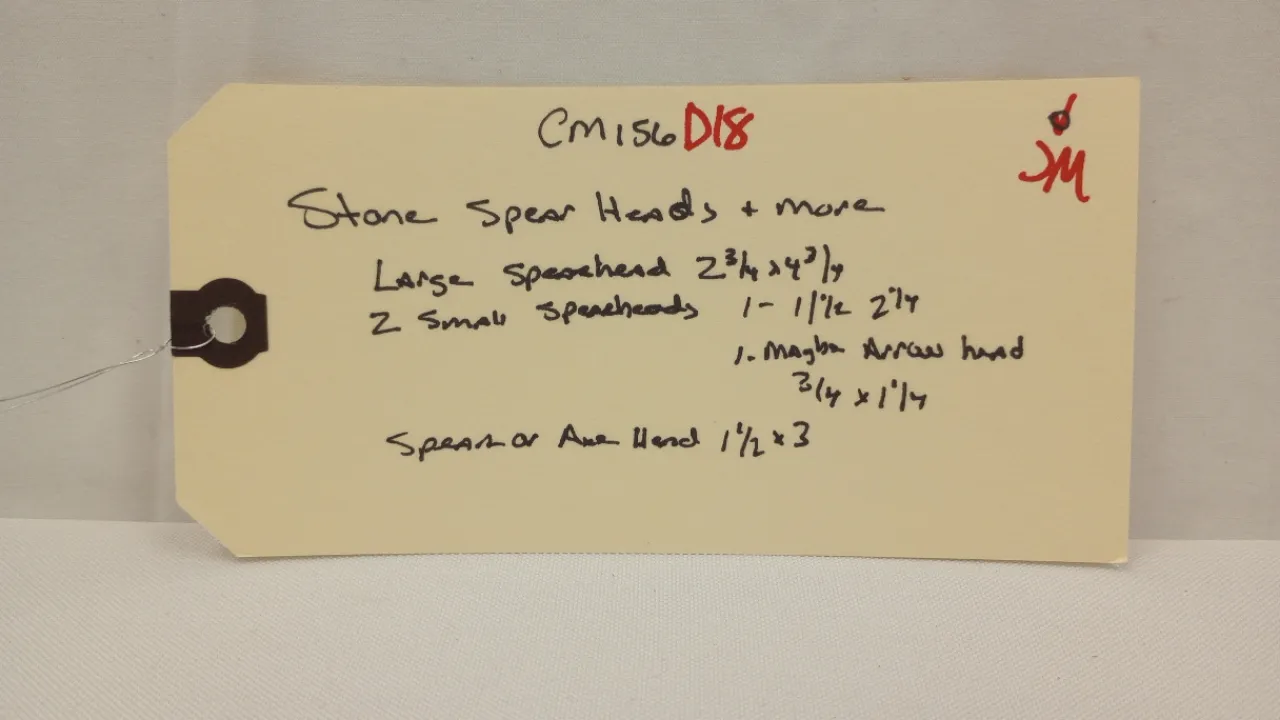 CM156D18
JM
Stone Spear Heads + more
Large Spearhead 2 3/4 x 4 3/4
2 Small Spearheads 1 - 1 1/2 2 1/4
1. Maybe Arrow head
3/4 x 1 1/4
Spear or Axe Head 1 1/2 x 3